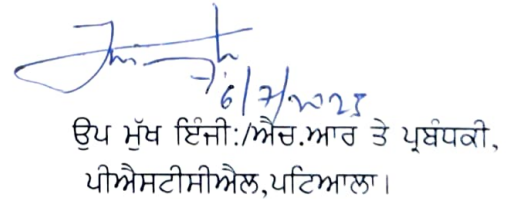 6/7/2025
ਉਪ ਮੁੱਖ ਇੰਜੀ:/ਐਚ.ਆਰ ਤੇ ਪ੍ਰਬੰਧਕੀ,
ਪੀਐਸਟੀਸੀਐਲ,ਪਟਿਆਲਾ।